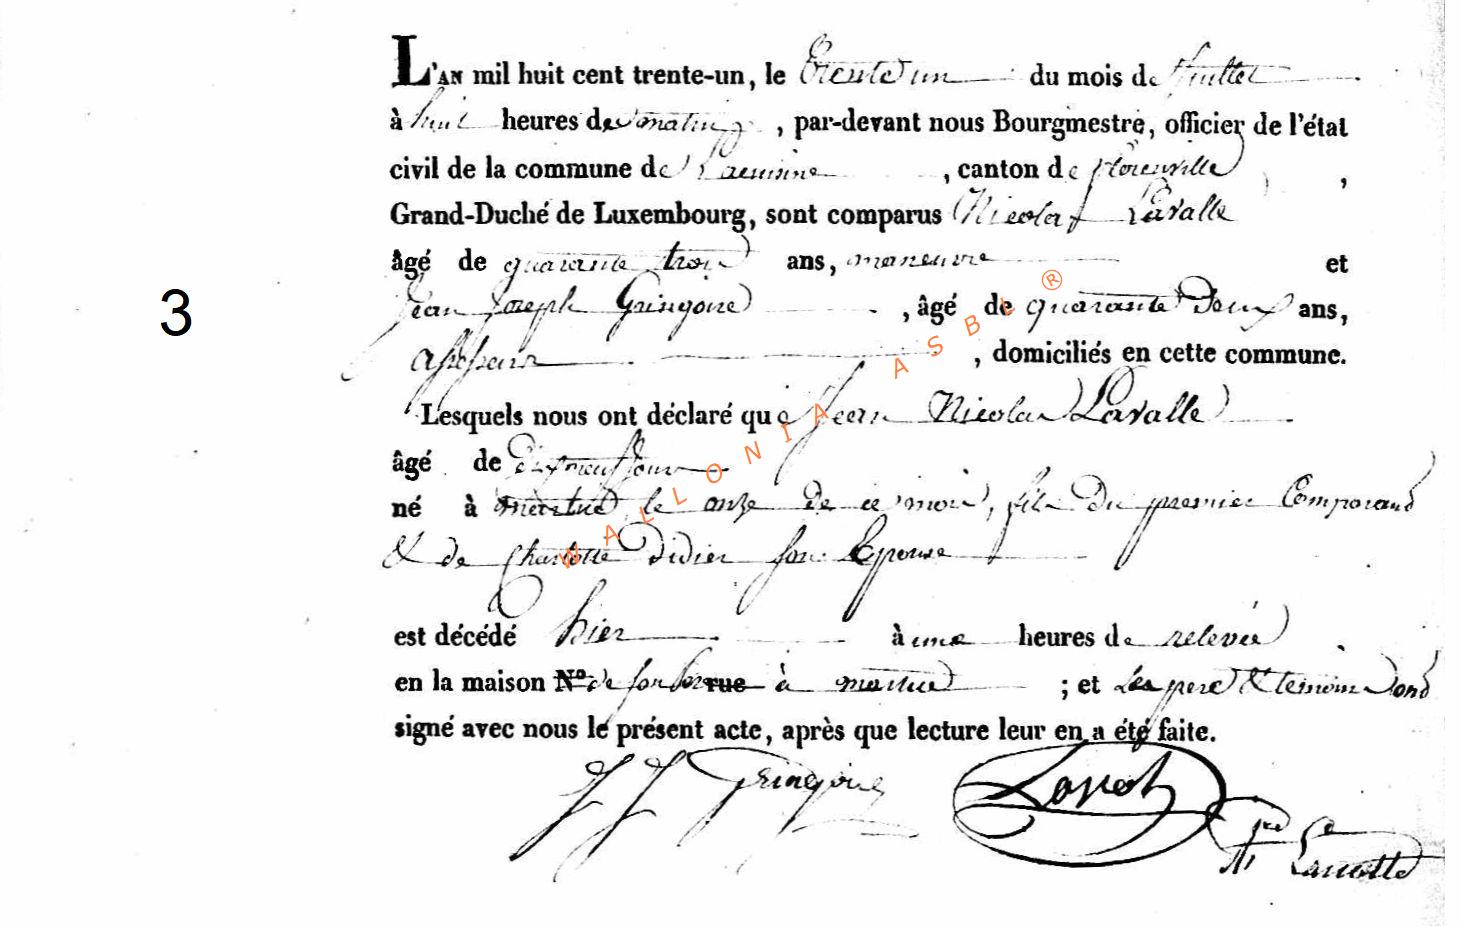 L'AN mil huit cent trente-un, le trente un du mois de Juillet
à huit heures de matin, par-devant nous Bourgmestre, officier de l'état
civil de la commune de Lacuisine, canton de florenville,
Grand-Duché de Luxembourg, sont comparus Nicolas Lavalle
âgé de quarante trois ans, maneuvre et
3
Jean Joseph Gringoire, âgé de quarante Deux ans,
assesseur, domiciliés en cette commune.
Lesquels nous ont déclaré que Jean Nicolas Lavalle
âgé de dix neuf jours
né à martué le onze de ce mois, fils Du premier Comparant
& de Charlotte Didier son Epouse
est décédé hier à une heures de relevée
en la maison N.º de son père rue à martué ; et Les pere & temoin Ont
signé avec nous le présent acte, après que lecture leur en a été faite.
J J Gringoire
WALLONIA ASBL ®